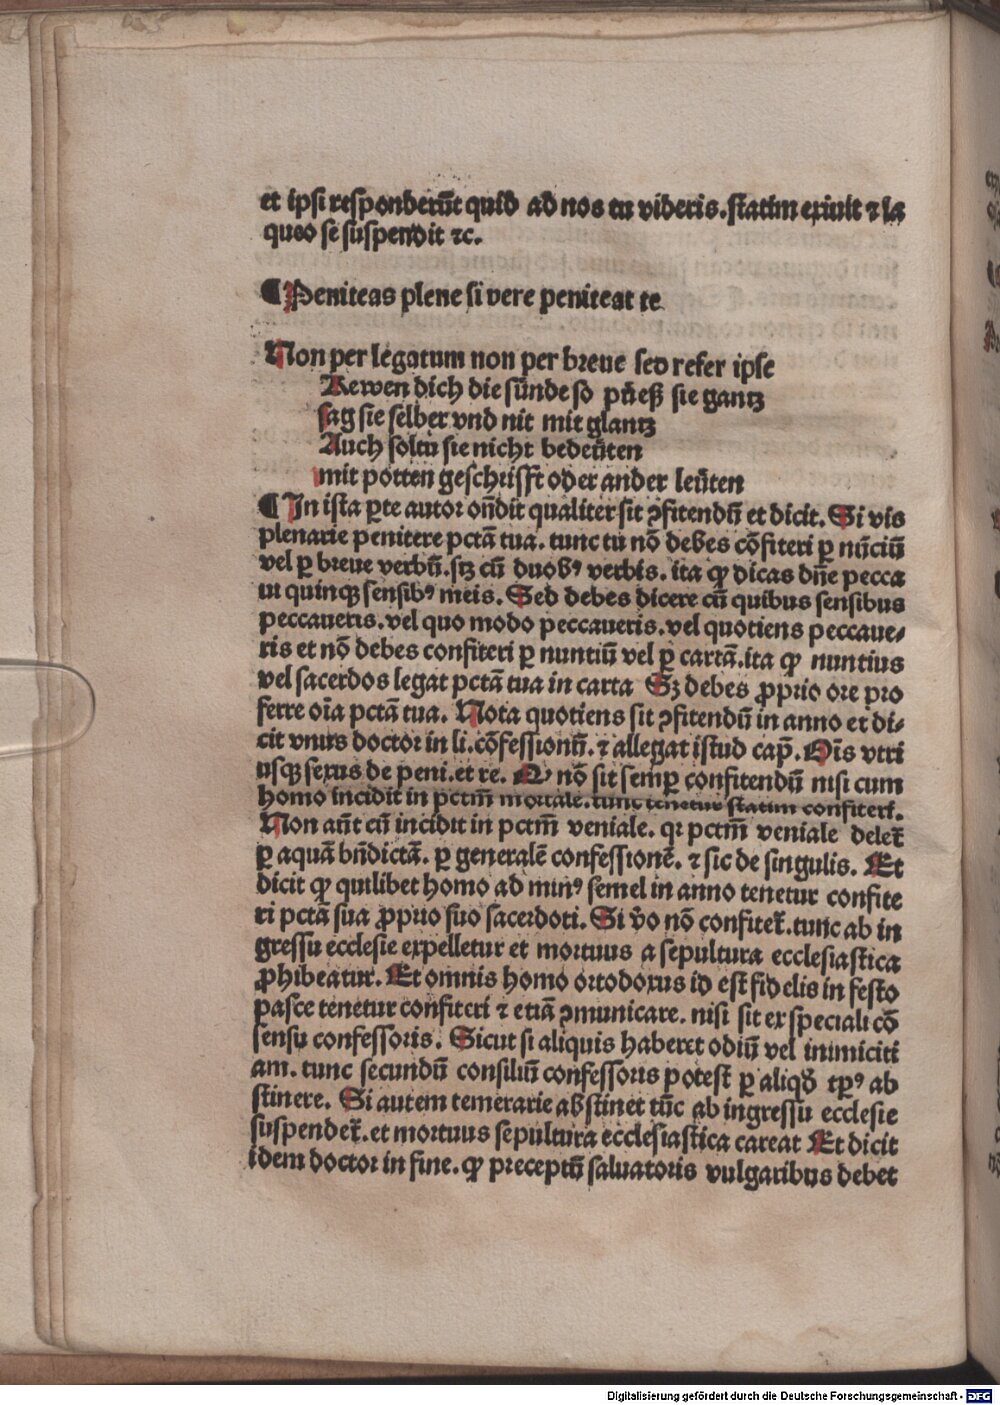 et ipsi responderūt quid ad nos tu videris.statim exiuit ⁊ la
queo se suspendit ⁊c.
¶ Peniteas plene si vere peniteat te
Non per legatum non per breue sed refer ipse
Rewen dich die sünde so pūeß sie gantz
sag sie selber vnd nit mit glantz
Auch soltu sie nicht bedeüten
mit potten geschrifft oder ander leüten
¶ In ista ꝑte autor oñdit qualiter sit ꝯfitendū et dicit. Si vis
plenarie penitere pctā tua. tunc tu nō debes cōfiteri ꝑ nūciū
vel ꝑ breue verbū.sꝫ cū duobꝰ verbis. ita ꝙ dicas dñe pecca
ui quinqꝫ sensibꝰ meis. Sed debes dicere cū quibus sensibus
peccaueris.vel quo modo peccaueris.vel quotiens peccaue⸗
ris et nō debes confiteri ꝑ nuntiū vel ꝑ cartā.ita ꝙ nuntius
vel sacerdos legat pctā tua in carta Sꝫ debes ꝓprio ore pro
ferre oīa pctā tua. Nota quotiens sit ꝯfitendū in anno et di⸗
cit vnus doctor in li.cōfessionū. ⁊ allegat istud cap̄. Oīs vtri
usqꝫ sexus de peni.et re. Ꝙ nō sit semꝑ confitendū nisi cum
homo incidit in pctm̄ mortale.tunc tenetur statim confiteri.
Non aūt cū incidit in pctm̄ veniale. qꝛ pctm̄ veniale delet᷑
ꝑ aquā bñdictā. ꝑ generalē confessionē. ⁊ sic de singulis. Et
dicit ꝙ quilibet homo ad minꝰ semel in anno tenetur confite
ri pctā sua ꝓprio suo sacerdoti. Si v̄o nō confitet᷑.tunc ab in
gressu ecclesie expelletur et mortuus a sepultura ecclesiastica
ꝓhibeatur. Et omnis homo ortodoxus id est fidelis in festo
pasce tenetur confiteri ⁊ etiā ꝯmunicare. nisi sit ex speciali cō
sensu confessoris. Sicut si aliquis haberet odiū vel inimiciti
am. tunc secundū consiliū confessoris potest ꝑ aliqd̄ tp̄ꝰ ab
stinere. Si autem temerarie abstinet tūc ab ingressu ecclesie
suspendet᷑.et mortuus sepultura ecclesiastica careat Et dicit
idem doctor in fine. ꝙ preceptū saluatoris vulgaribus debet
Digitalisierung gefördert durch die Deutsche Forschungsgemeinschaft - DFG